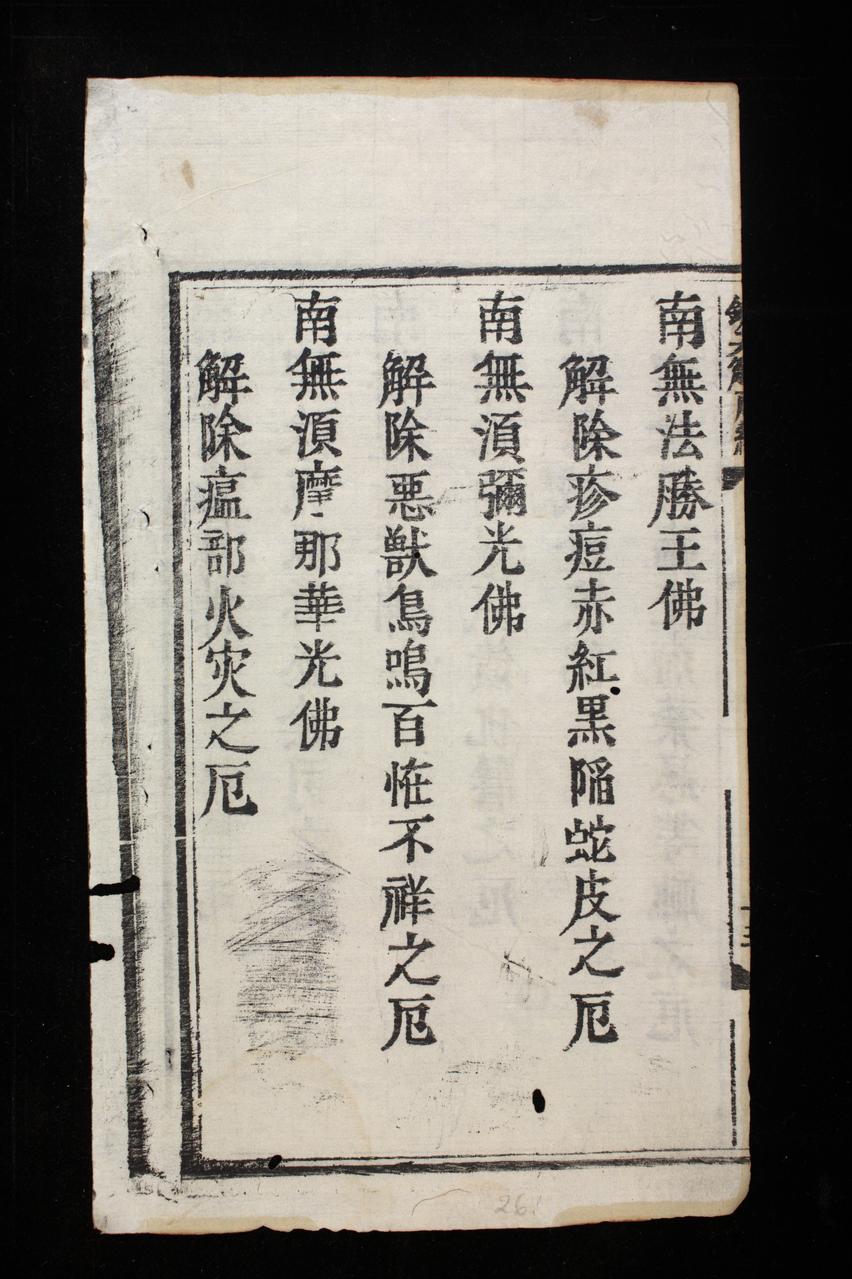 南無法勝王佛
解除疹痘赤紅黑陷蛇皮之厄
南無湏彌光佛
解除惡獸鳥鳴百恠不祥之厄
南無湏摩那華光佛
解除瘟部火灾之厄
26